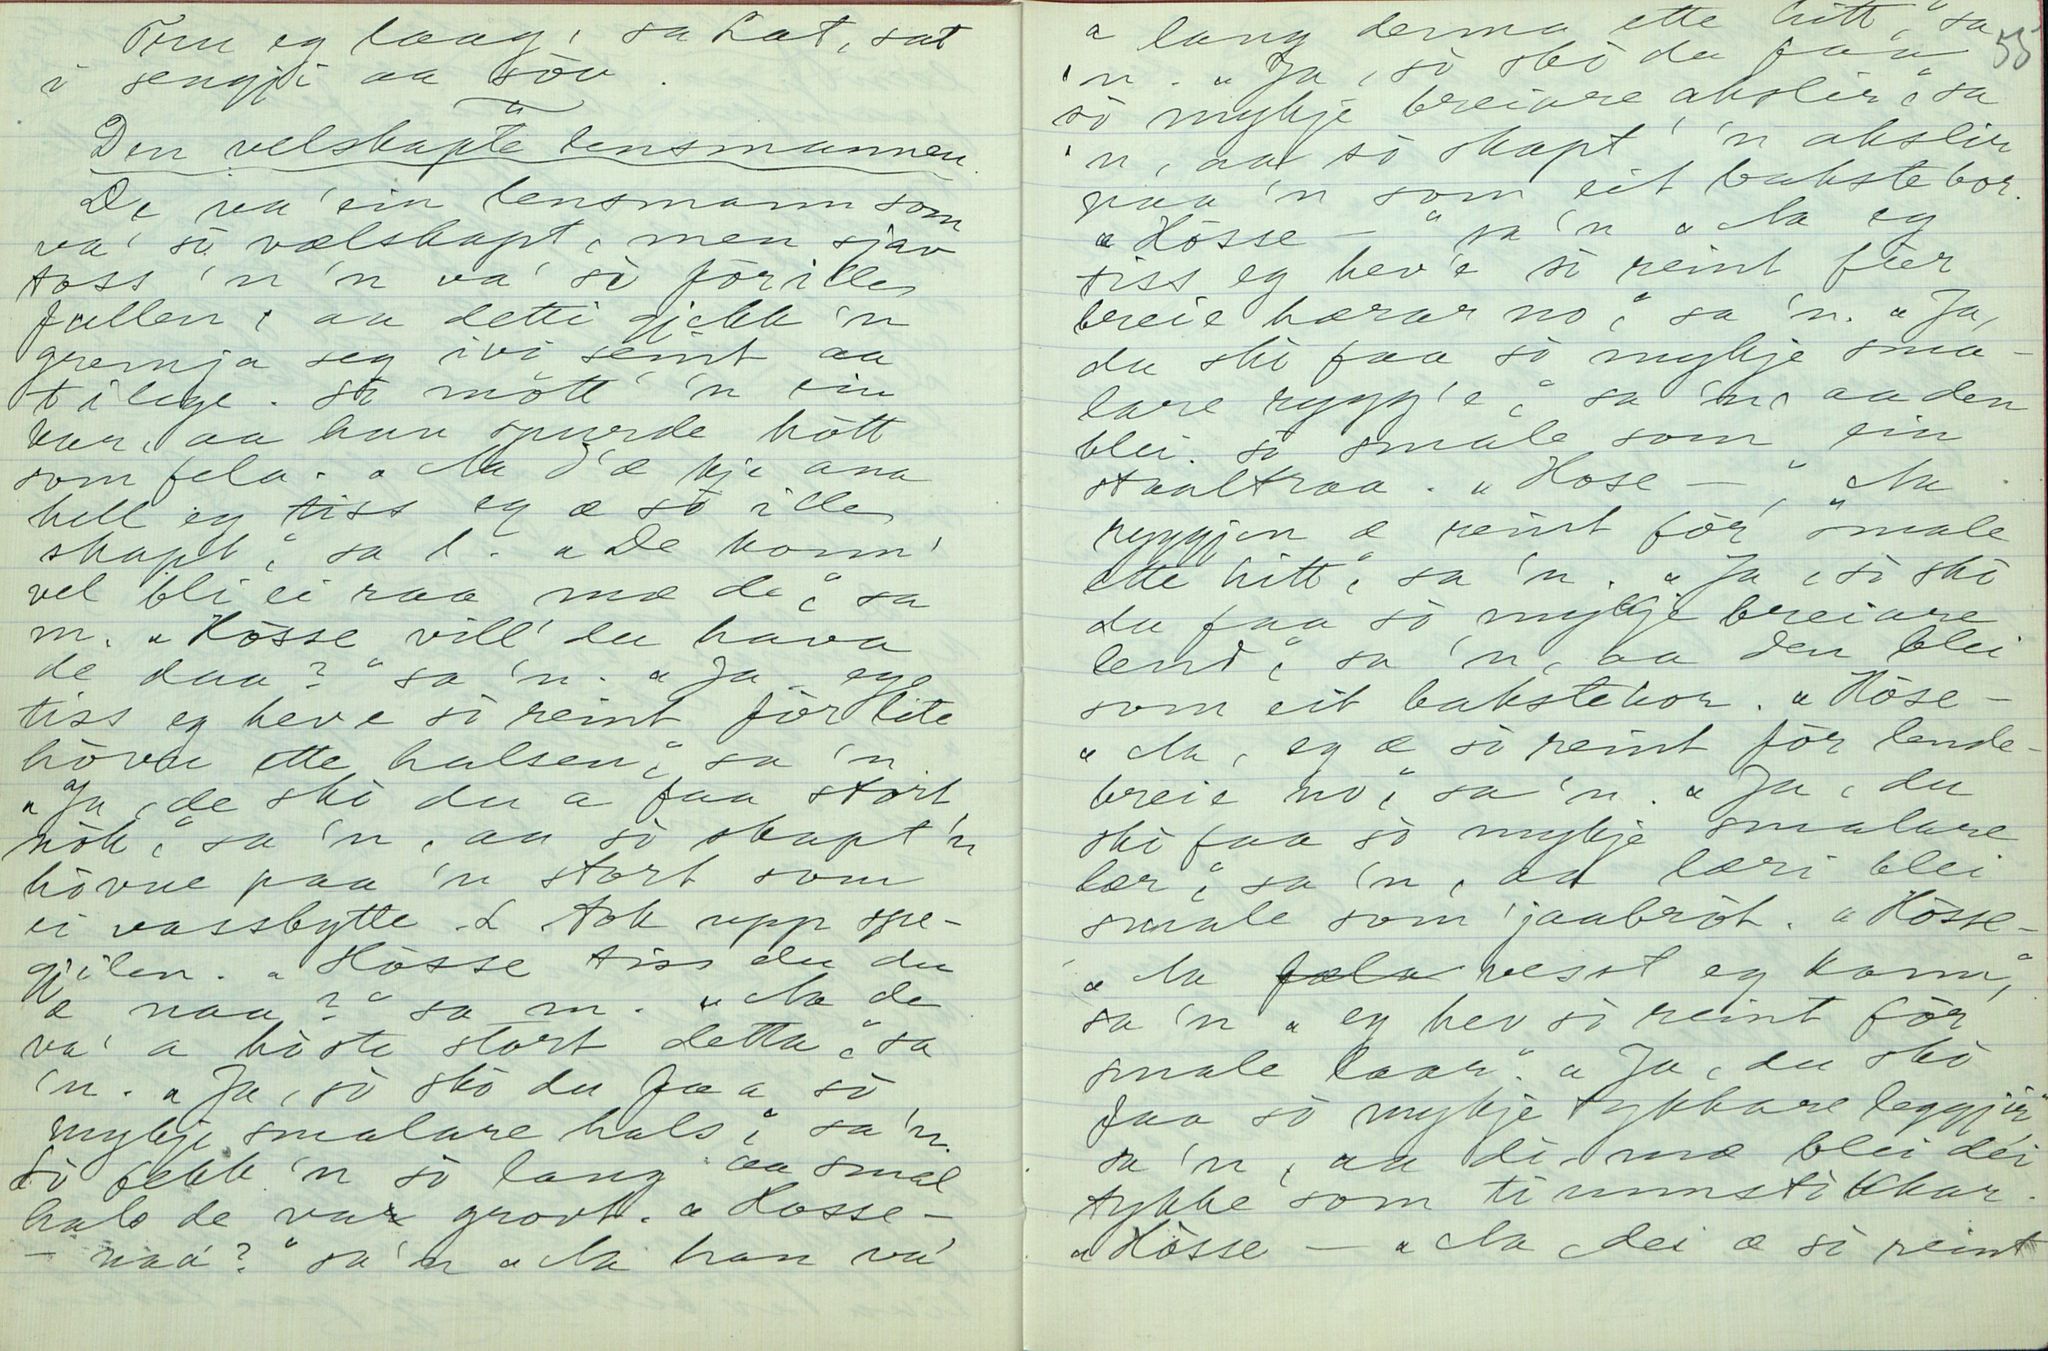 Tru eg laag, sa Lat, sat
i sengji aa söv.
Den velskapte lensmannen
De va' ein lensmann som
va' sò vælskapt, men sjav
toss 'n 'n va' sò förille
fallen, aa detti gjekk 'n
gremja seg ivi seint aa
tilege. Sò mött' 'n ein
kar, aa han spurde hött
som fela. "Aa d'æ kje ana
hell eg tiss eg æ sò ille
skapt," sa l. "De konn'
vel bli ei raa mæ de," sa
m. "Hösse vill' du hava
de daa?" sa 'n. "Ja eg
tiss eg heve sò reint för lite
hövu ette halsen," sa 'n.
"Ja, de skò du a faa stort
nòk," sa 'n, aa sò skapt 'n
hövue paa 'n stort som
ei vassbytte. L tok upp spe-
gjilen. "Hösse tiss du du
æ naa?" sa m. "Aa de
va' a höste stort detta," sa
'n. "Ja, sò skò du faa sò
mykje smalare hals," sa 'n.
Sò fekk 'n sò lang aa smal
hals de var grovt. "Hosse-
- naa?" sa 'n "Aa han va'
a lang derma ette hitt," sa 55
'n. "Ja, sò skò du faa
sò mykje breiare akslir," sa
'n, aa sò skapt 'n akslir
paa 'n som eit bakstebor.
"Hösse -" sa 'n "Aa eg
tiss eg hev'e sò reint för
breie hærar no," sa 'n. "Ja,
du skò faa sò mykje sma-
lare rygg'e," sa 'n, aa den
blei sò smale som ein
staaltraa. "Hose -", "Aa
ryggjen æ reint för smale
ette hitt," sa 'n. "Ja, sò skò
du faa sò mykje breiare
lend," sa 'n, aa den blei
som eit bakstebor. "Höse -
"Aa, eg æ sò reint för lende-
breie no," sa 'n. "Ja, du
skò faa sò mykje smalare
lær," sa 'n, aa læri blei
smale som jaabröt. "Hösse -
"Aa fæla visst eg konn,"
sa 'n "eg hev sò reint för
smale laar". "Ja, du skò
faa sò mykje tykkare leggjir"
sa 'n, aa di mæ blei dei
tykke som timmstikkar.
"Hösse - "Aa, dei æ sò reint